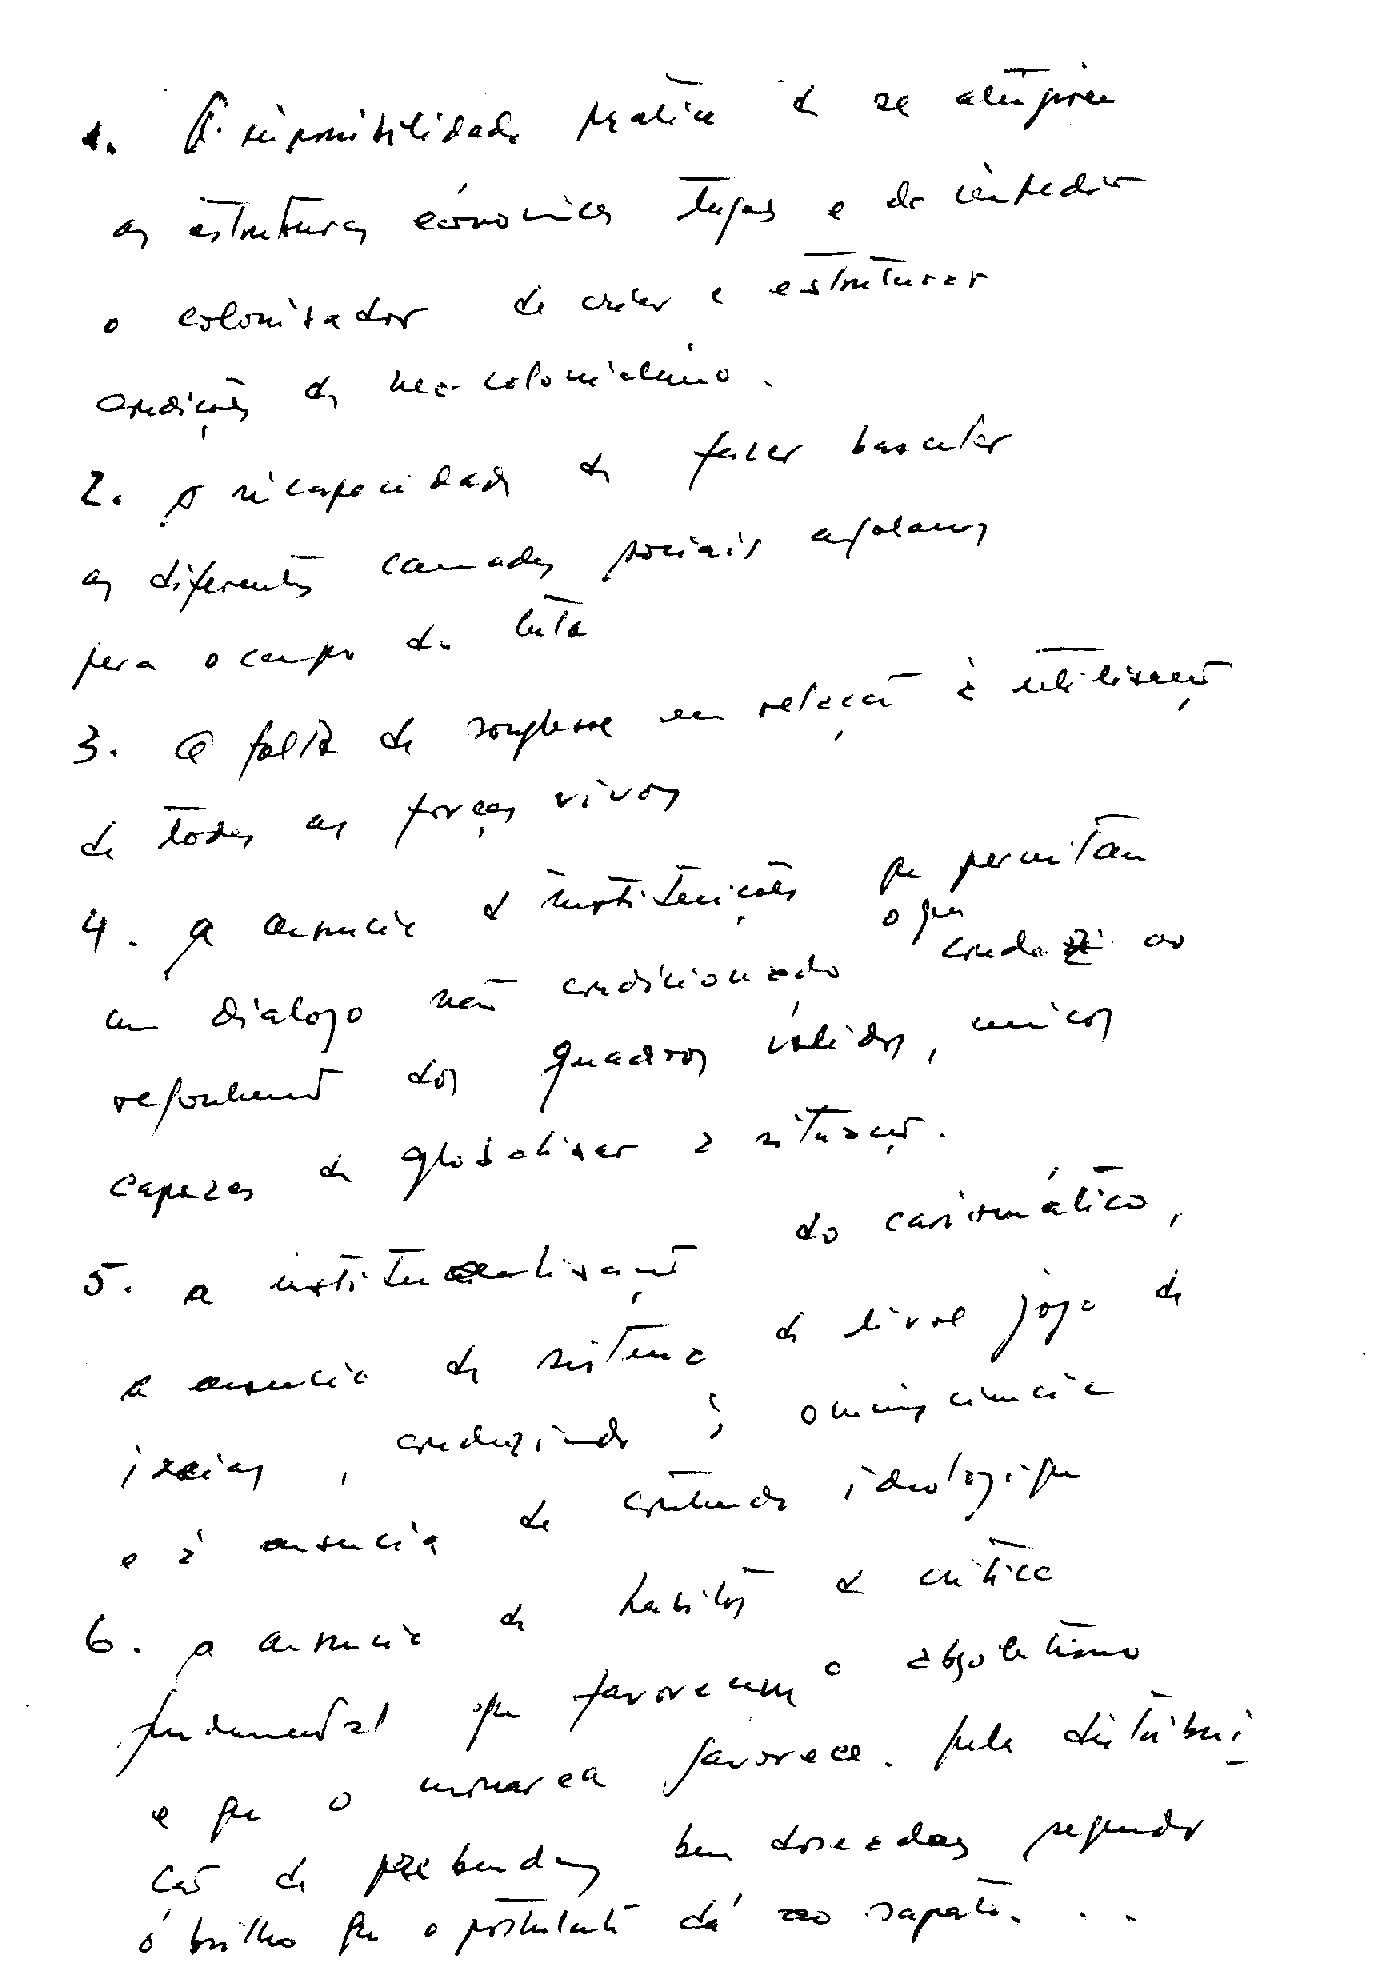 1. A impossibilidade prática de se atingirem
as estruturas económicas tugas e de impedir
o colonizador de criar e estruturar
condições de neo-colonialismo.
2. A incapacidade de fazer bascular
as diferentes camadas sociais angolanas
para o campo da luta
3. A falta de souplesse em relação à utilização
de todas as forças vivas
4. A ausencia de instituições que permitam
um dialogo não condicionado o que conduz ao
afastamento dos quadros válidos, unicos
capazes de globalizar a situação.
5. a institucionalização do carismático,
a ausencia de sistema de livre jogo de
ideias, conduzindo à omnisciencia
e à ausencia de conteudo ideologique
6. A ausencia de habitos de critica
fundamental que favorecem o absolutismo
e que o monarca favorece. pela distribui
ção de prebendas bem doseadas segundo
o brilho que o postulante dá ao sapato. . .